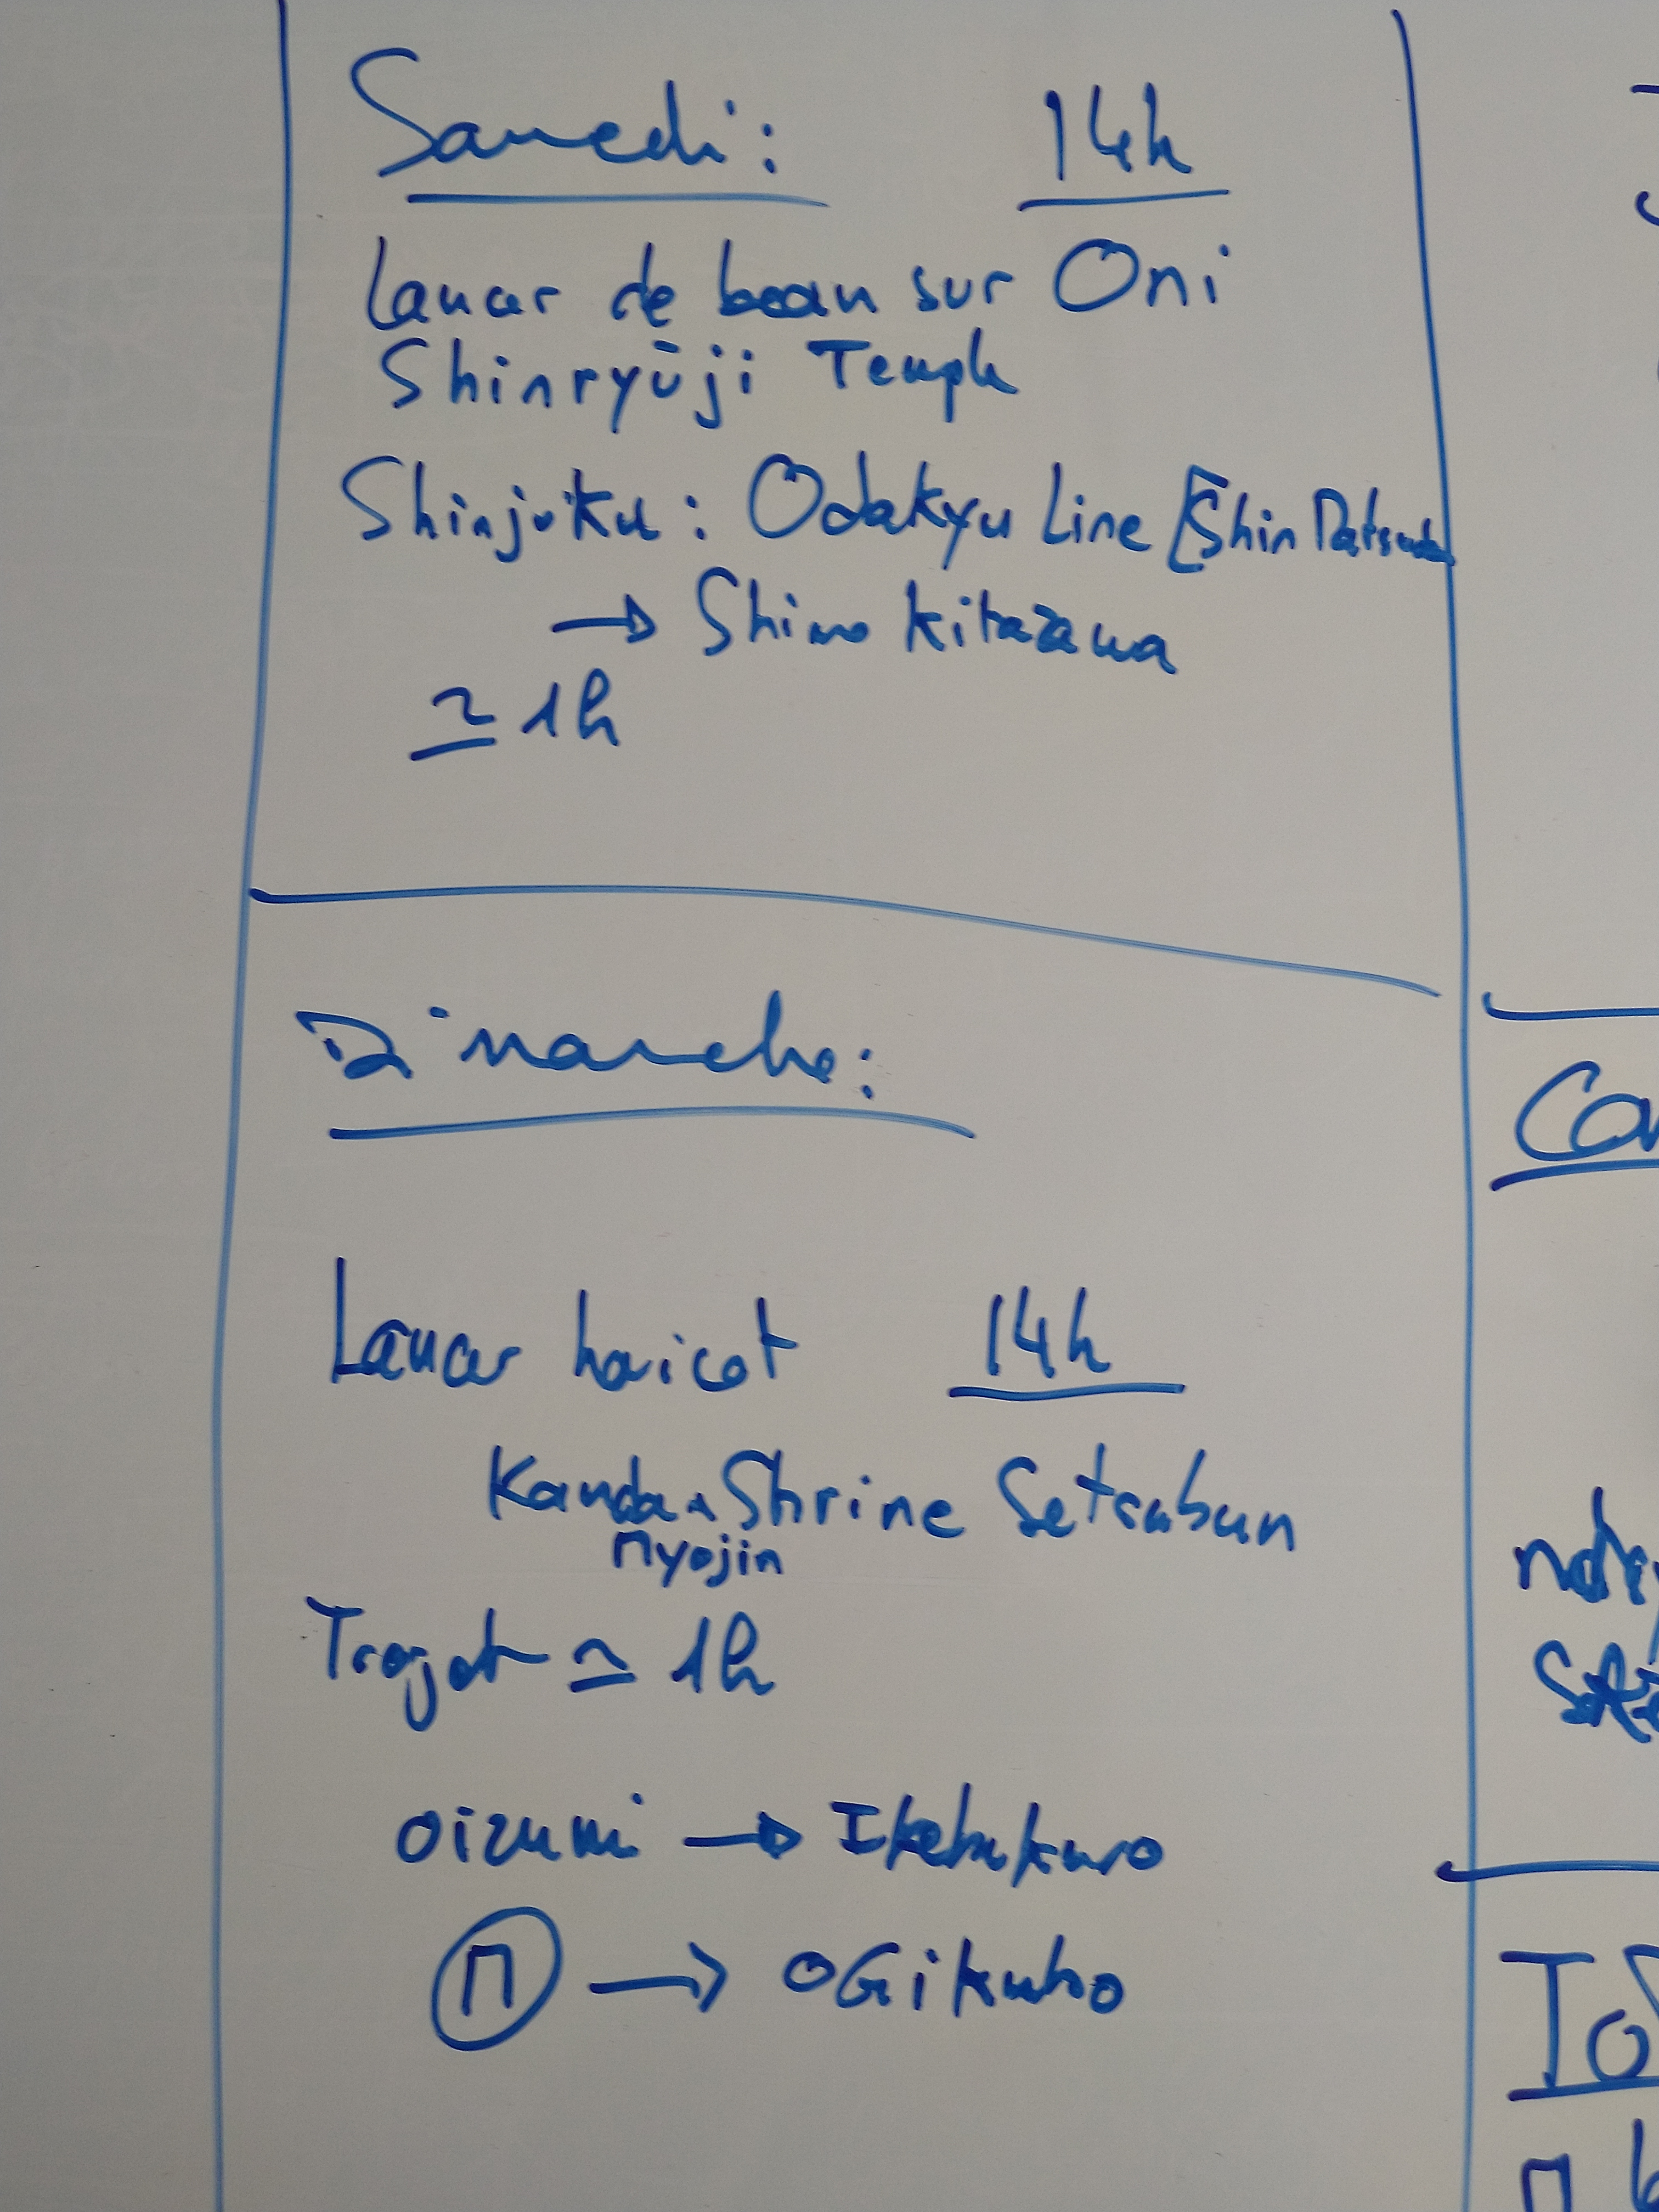 Samedi: 14h
Lancer de bean sur Oni
Shinryūji Temple
Shinjuku: Odakyu Line [Shin Matsuda
→ Shimo Kitazawa
≃ 1h
Dimanche:
Lancer haricot 14h
Kanda Shrine Setsubun
Myojin
Trajet ≃ 1h
Oizumi → Ikebukuro
M → OGikubo
Co
To